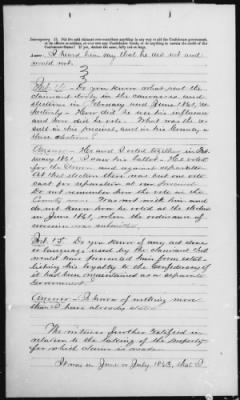 Interrogatory 13. Did the said claimant ever do anything in any way to aid the Confederate government,
or its officers or soldiers, or ever
Confederate States? If yea, declare the same, fully and at large.
Answer I heard him say that he did not and
would not.
3
3
Int. 14 Do you know what part the
claimant took in the canvasses and
elections in February and June 1861, re
spectively - How did he use his influence
and how did he vote. What was the re
sult in his precinct, and in his County -
these elections?
Answer - He and I voted together in Feb
ruary 1861, I saw his ballot - He voted
for the Union and against separation
At this election there was but one vote
cast for separation at our Precinct.
Do not remember how the vote in the
County went. Was not with him and
do not know how he voted at the election
in June 1861, when the ordinance of
secession was submitted.
Int. 15 Do you know of any act done
or language used by the claimant that
would have prevented him from estab
lishing his loyalty to the Confederacy if
it had been maintained as a separate
Government.
Answer - I know of nothing more
than I have already stated
The witness further testified in
relation to the taking of the property
for which claim is made.
It was in June or July, 1863, that I